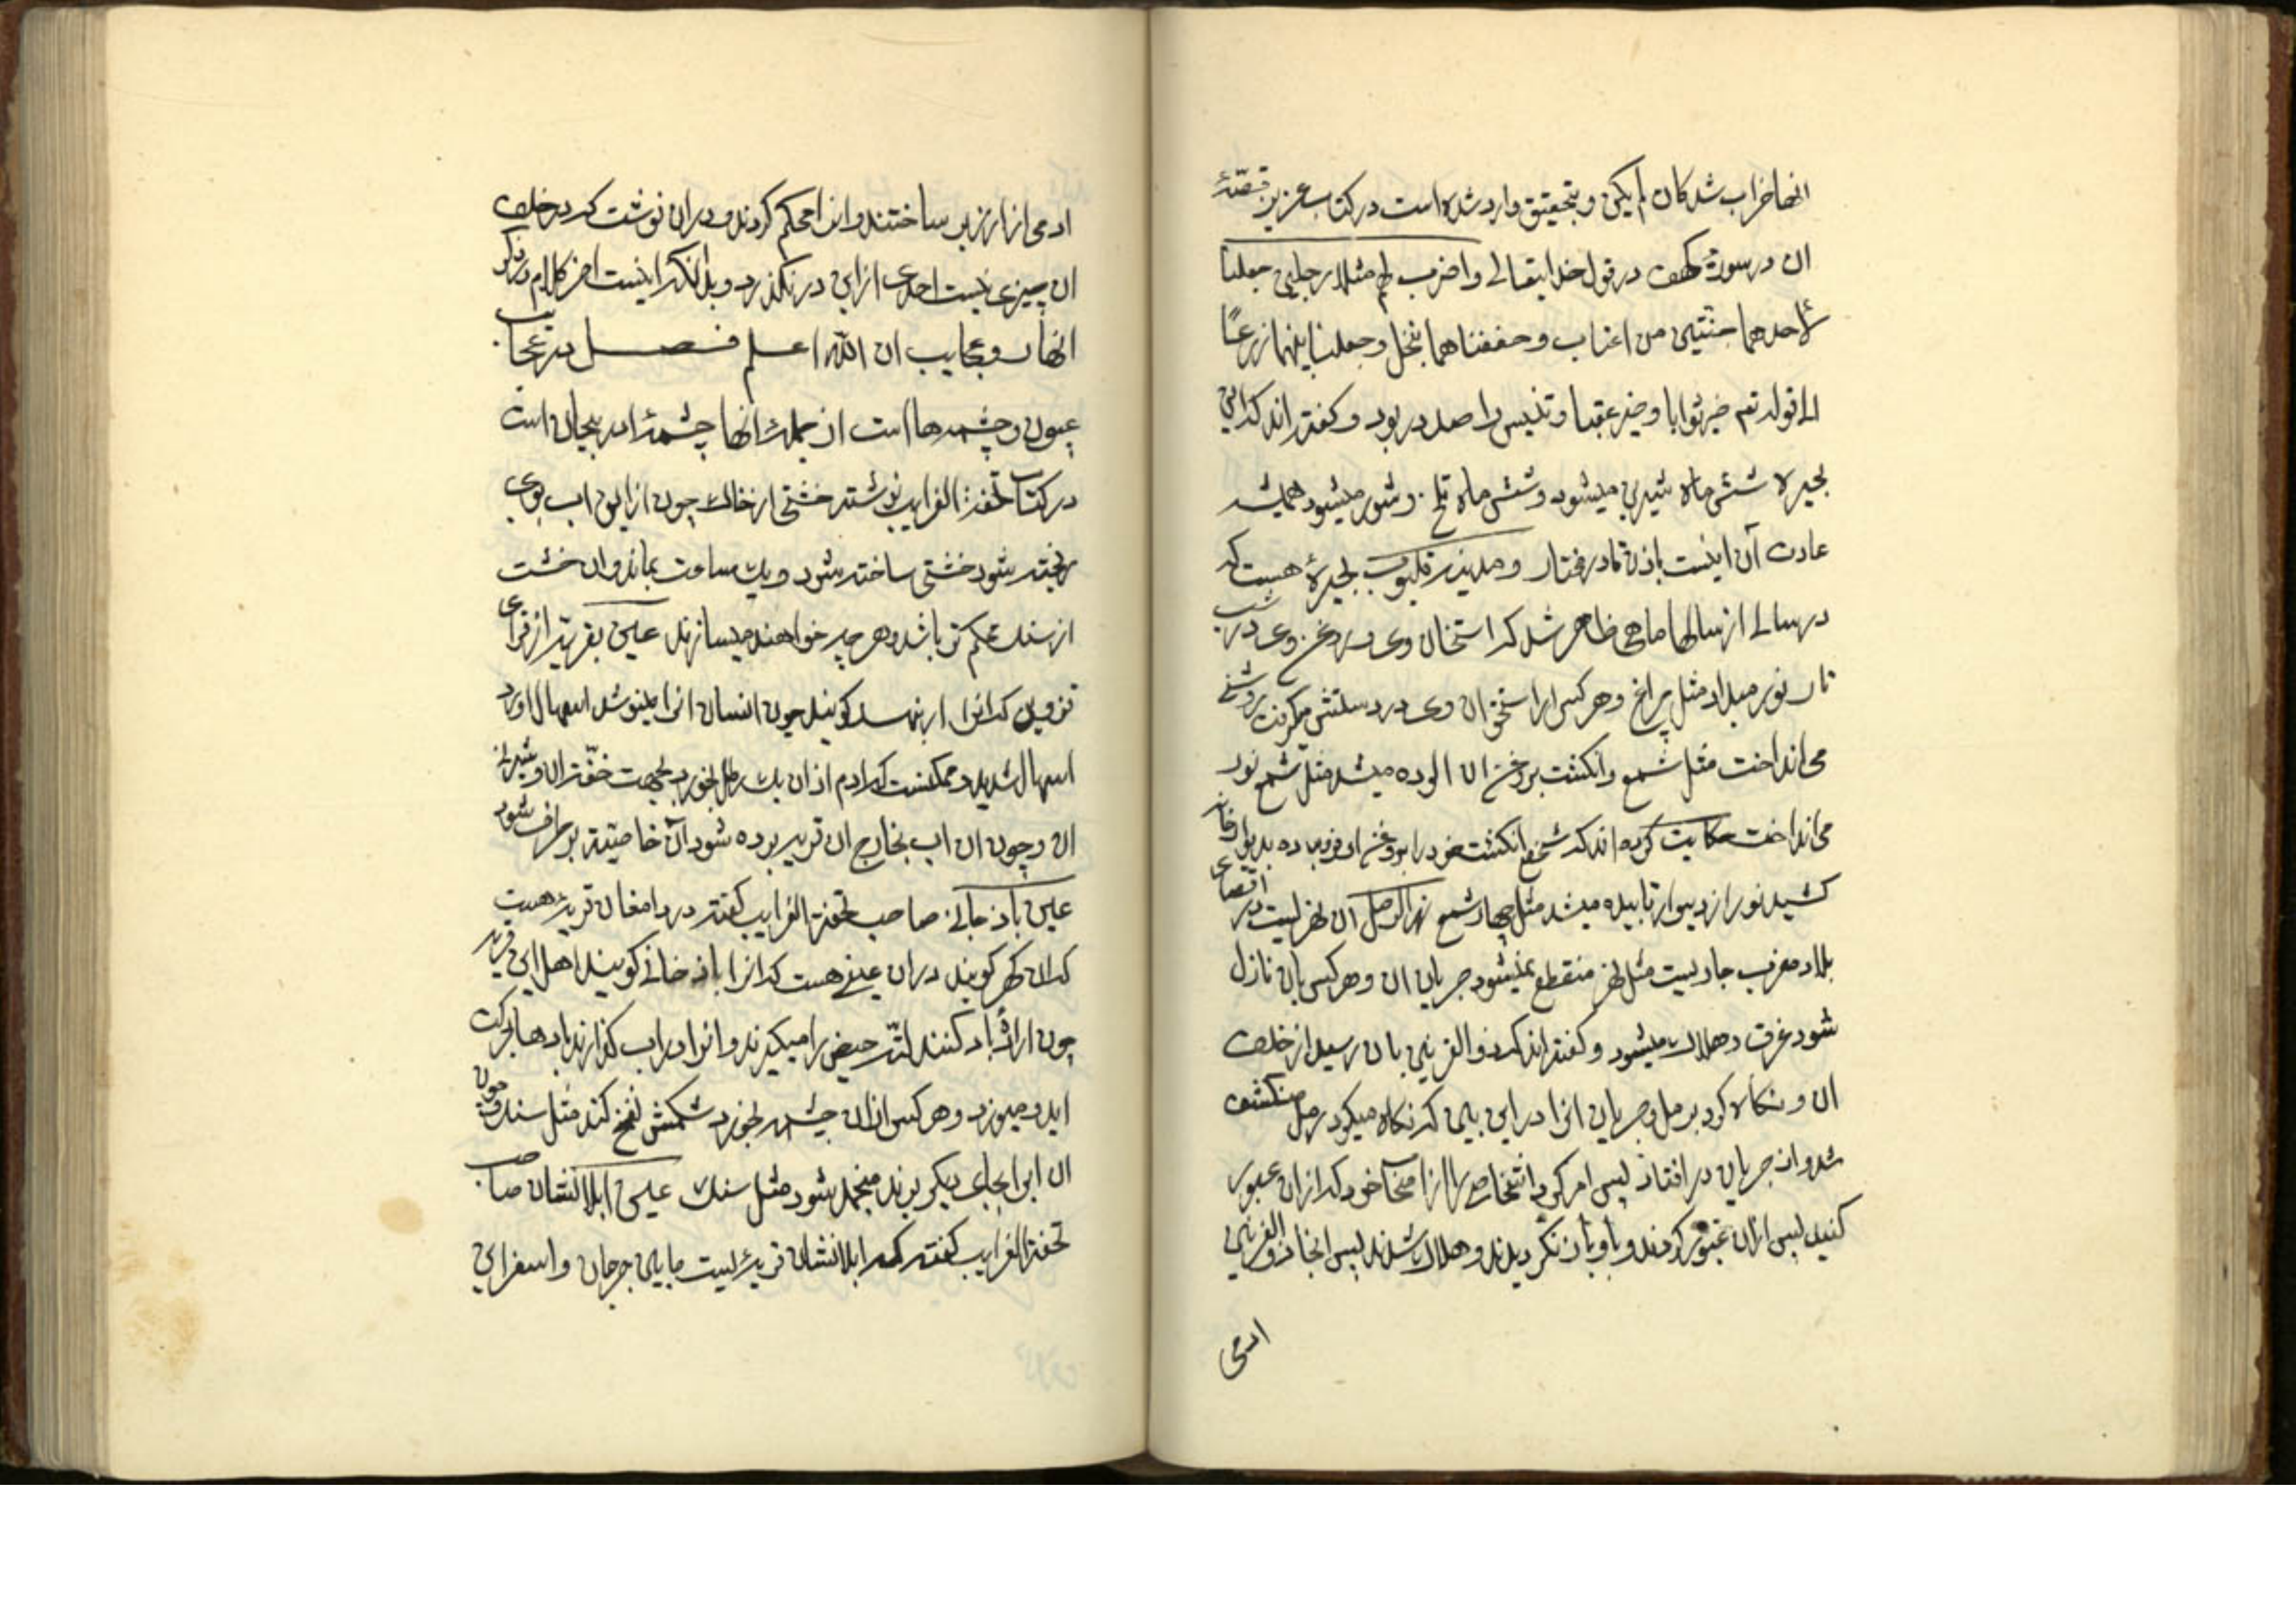 انها خراب شد کان لم یکن و بتحقیق وارد شده است در کتاب عزیز قصّهٔ
ان در سورهٔ کهف در قول خدایتعالے واضرب لهم مثلا رجلین جعلنا
لأحدهما جنتین من اعناب و حففناهما بنخل و جعلنا بینهما زرعًا
الی قوله تعم خیر ثوابا و خیر عقبا و تنیس را صد در بود و کفته اند که این
بحیره شش ماه شیرین میشود و شش ماه تلخ و شور میشود همیشه
عادت آن اینست باذن قادر مختار و مدینه قلیوب بحیرهٔ هست که
در سالے از سالها ماهی ظاهر شد که استخان وی و روغن وی در شب
تار نور میداد مثل چراغ و هر کس ار استخوان وی در دستش میکرفت روشنے
می انداخت مثل شمع و انکشت بروغن ان الوده میشد مثل شمع نور
می انداخت حکایت کرده اند که شخصی انکشت خود را بروغن او فرو برده بدیوار خانه
کشید نور از دیوار تابیده میشد مثل چهار شمع نهر الرمل آن نهریست در اقصای
بلاد مغرب جاریست مثل نهر منقطع نمیشود جریان ان و هر کس بان نازل
شود غرق و هلاک میشود و کفته اند که ذو القرنین بان رسید از خلف
ان و نکاه کرد برمل و جریان انرا در این بین که نکاه میکرد رمل منکشف
شد و از جریان در افتاد پس امر کرد اشخاص را از اصحاب خود که از ان عبور
کنید پس ازان عبور کردند و باو باز نکردیدند و هلاک شدند پس انجا ذو القرنین
ادمی
ادمی از ارزیز ساختند و انرا محکم کردند و دران نوشت که در خلف
ان چیزی نیست احدی ازاین در نکذرد و بدانکه اینست اخر کلام در ذکر
انهار و عجایب ان الله اعلم فصل در عجایب
عیون و چشمه ها است از جملهٔ انها چشمهٔ ادربیجان است
در کتاب تحفة الغرایب نوشته خشتی از خاک چون ازاین اب بروی
ریخته شود خشتی ساخته شود و یک ساعت بماند وان خشت
از سنک محکم تر باشد و هر چه خواهند میسازند عین بقریهٔ از قرای
قزوین که انرا ار نهسد کویند چون انسان انرا بنوشد اسهال اورد
اسهال شدید و ممکنست که ادم از ان یک رطل بخورد بجهت خفّت ان و شیرینے
ان و چون ان اب بخارج ان قریه برده شود آن خاصیّت بر طرف شود
عین باد خانے صاحب تحفة الغرایب کفته در دامغان قریهٔ هست
که ان کهر کویند دران عینے هست که انرا باد خانے کویند اهل این قریه
چون ارادهٔ باد کنند لتّه حیض را میکیرند و انرا در اب کذارند باد ها بحرکت
اید و میوزد و هر کس ازان چشمه بخورد شکمش نفخ کند مثل سنک و چون
ان ابرا بجای دیکر برند منجمد شود مثل سنک عین ابلانشان صاحب
تحفة الغرایب کفته که ابلانشان قریهٔ لیست مابین جرجان و اسفراین